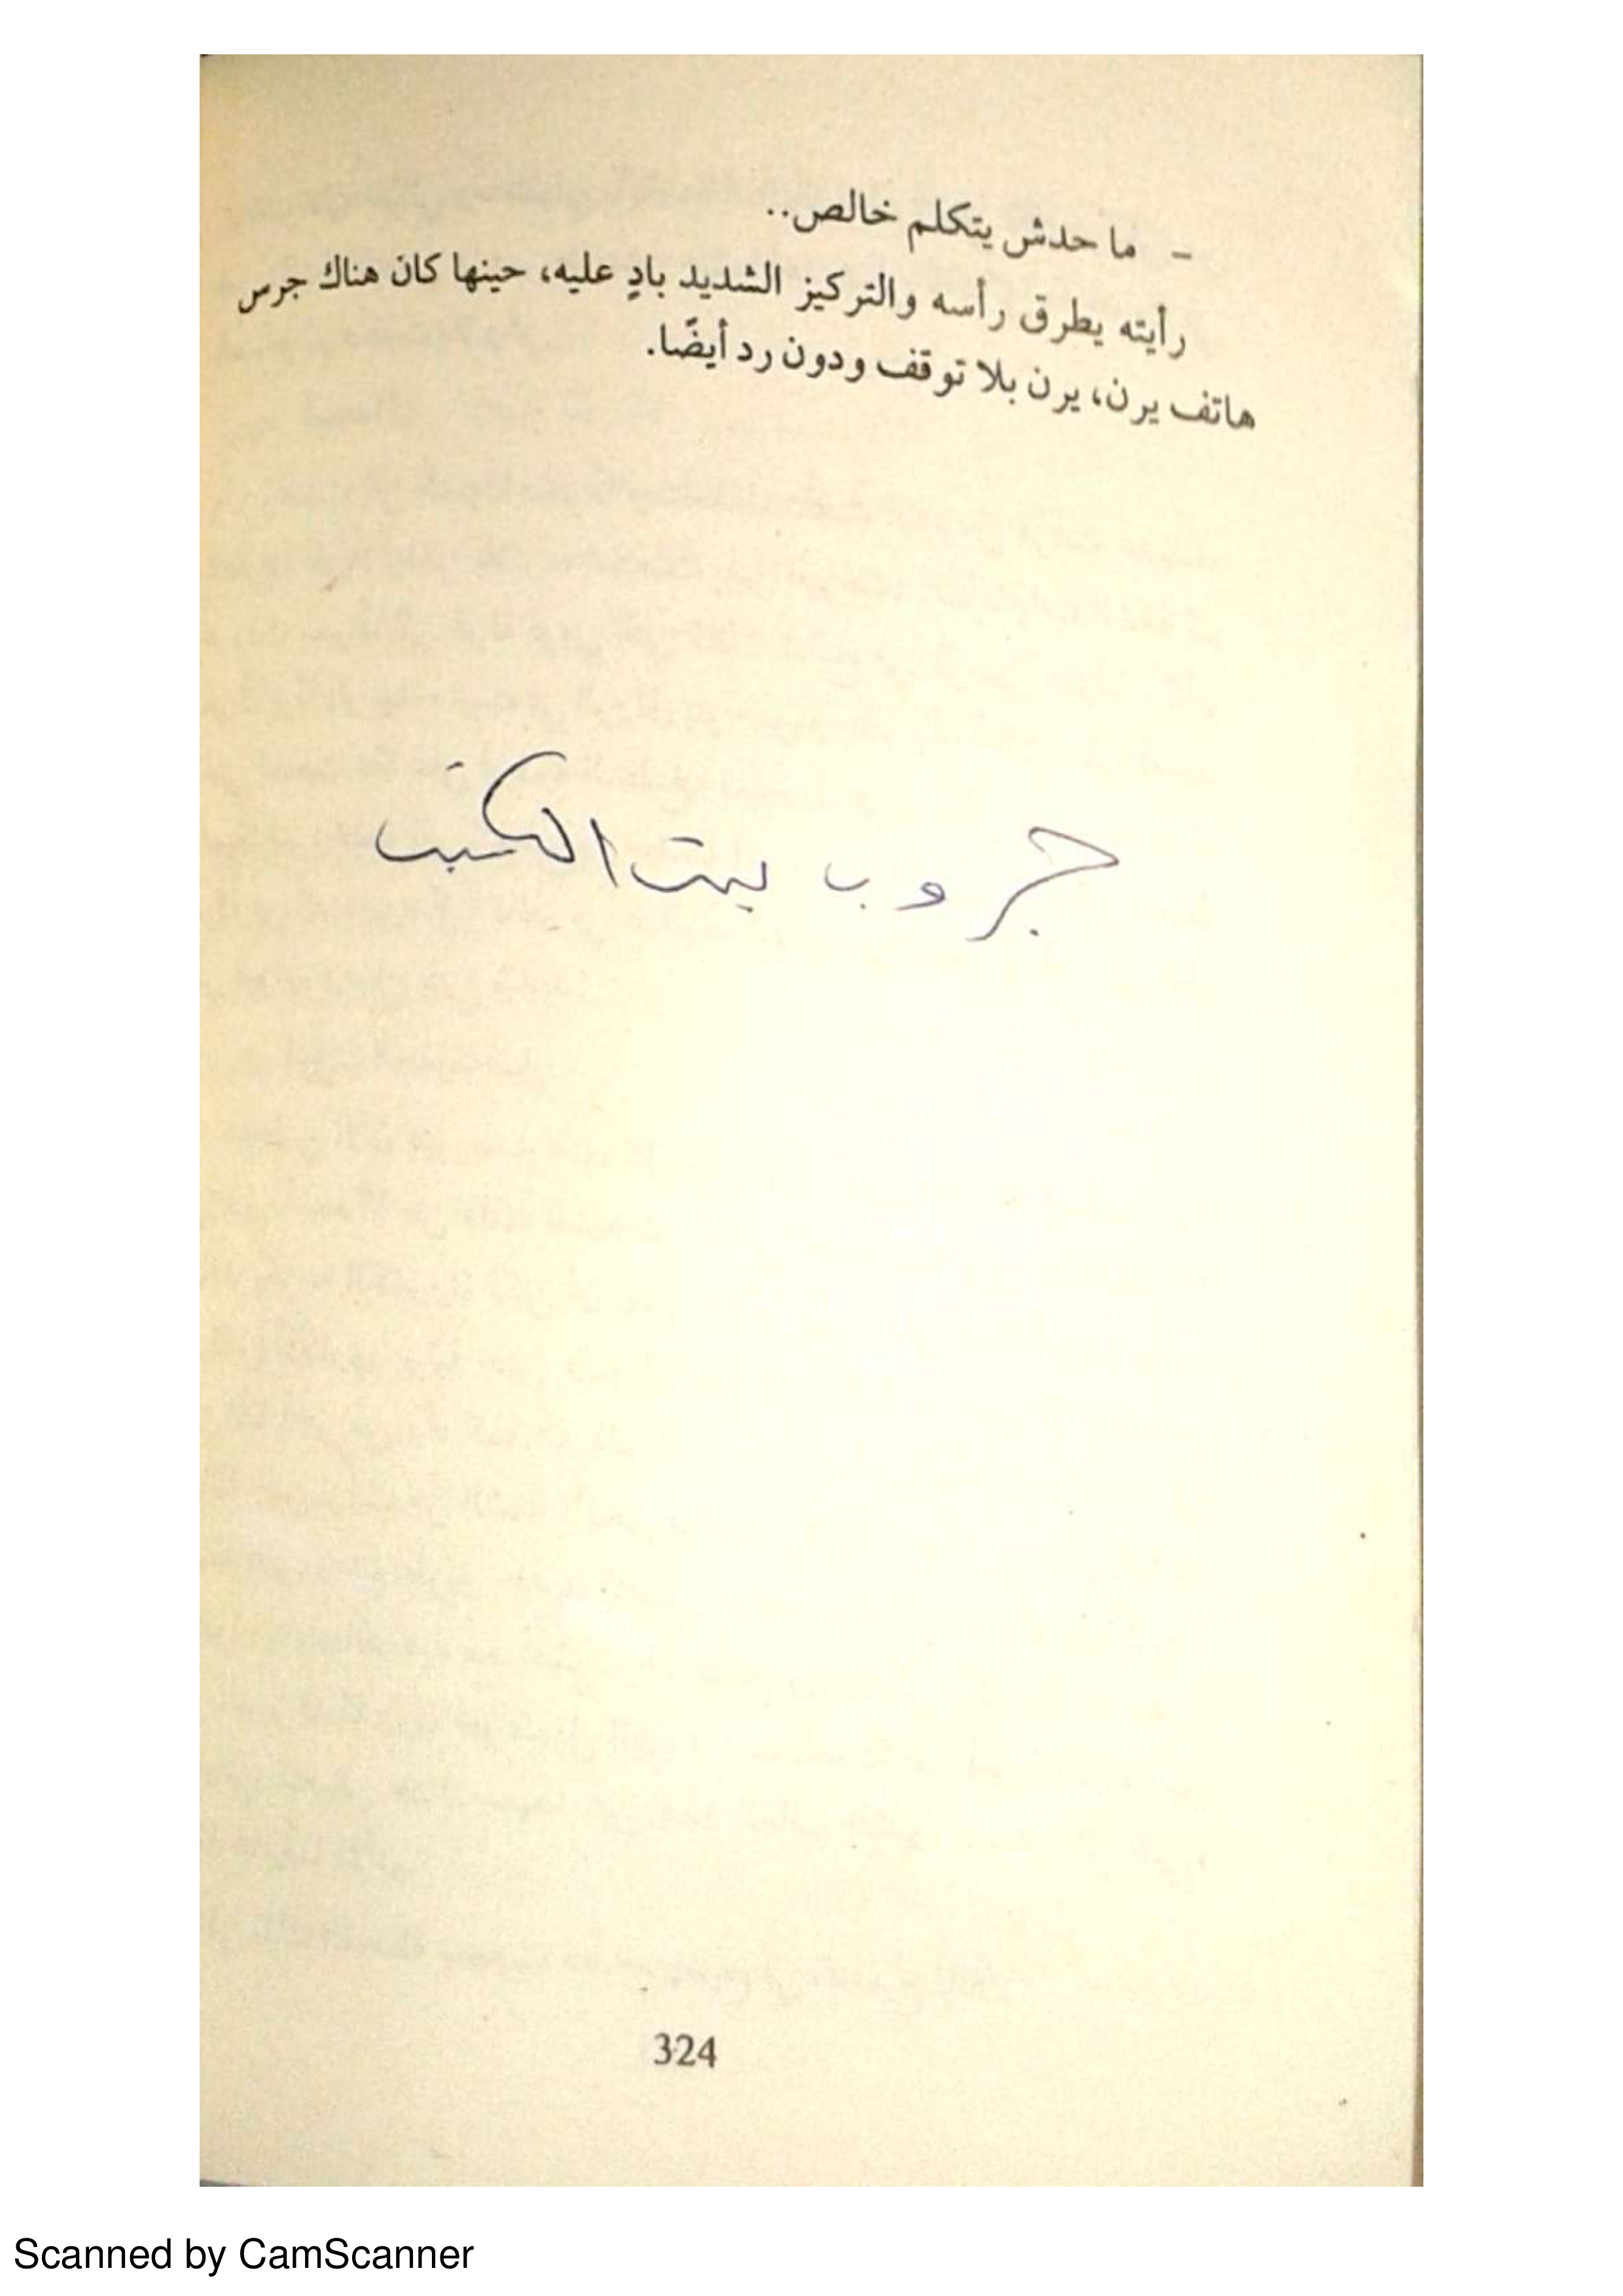 - ما حدش يتكلم خالص..
رأيته يطرق رأسه والتركيز الشديد بادٍ عليه، حينها كان هناك جرس
هاتف يرن، يرن بلا توقف ودون رد أيضًا.
جروب بيت الكتب
324
Scanned by CamScanner